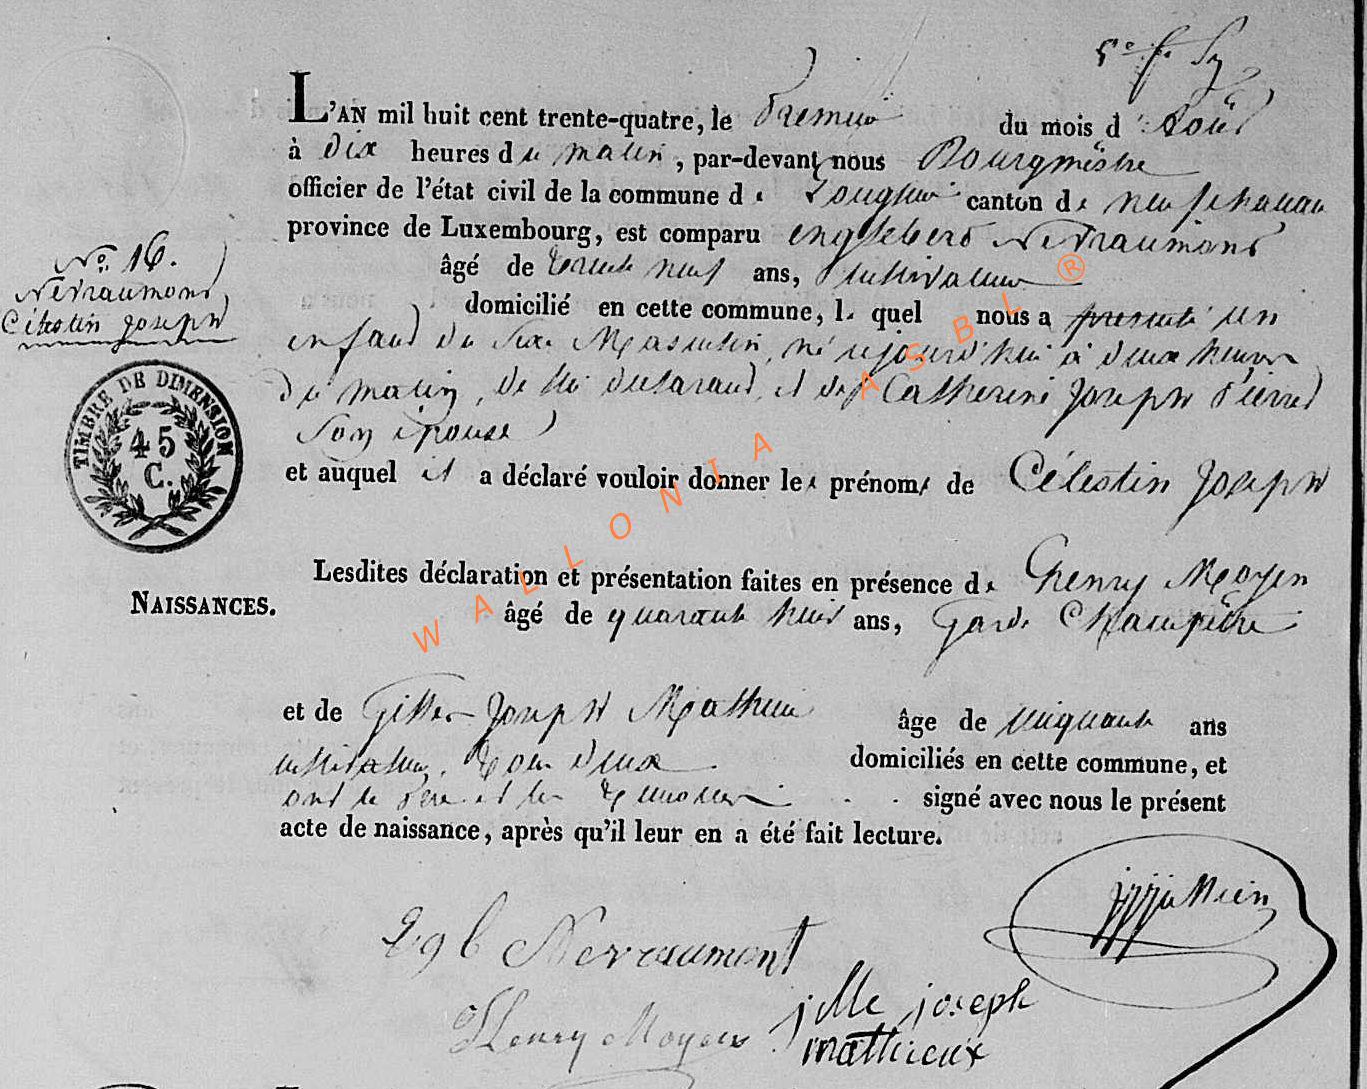 L'AN mil huit cent trente-quatre, le Premier du mois d'Août
à Dix heures du matin, par-devant nous Bourgmestre
officier de l'état civil de la commune de Longlier canton de neufchateau
province de Luxembourg, est comparu englebert Nevraumont
âgé de trente neuf ans, cultivateur
domicilié en cette commune, lequel nous a presenté un
enfant du sexe Masculin, né cejourd'hui à deux heures
du matin, de lui declarant, et de Catherine Joseph Pierret
son épouse
et auquel il a déclaré vouloir donner les prénoms de Célestin Joseph
No. 16.
Nevraumont
Célestin Joseph
TIMBRE DE DIMENSION
45
C.
NAISSANCES.
Lesdites déclaration et présentation faites en présence de henry Moyen
âgé de quarante huit ans, Garde Champêtre
et de Gille Joseph Mathieu âge de cinquante ans
cultivateur, tous deux domiciliés en cette commune, et
ont le Père et les temoins signé avec nous le présent
acte de naissance, après qu'il leur en a été fait lecture.
Egb Nevraumont
Henry Moyen jille joseph
mathieux
WALLONIA ASBL ®